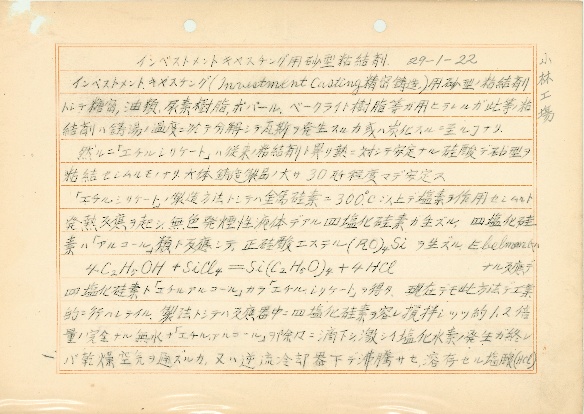 インベストメントキャステング用砂型粘結剤. 29-1-22
小林工場
インベストメント、キャステング(Investment Casting 精密鋳造)用砂型ノ粘結剤
トシテ糖蜜,油類,尿素樹脂,ポバール,ベークライト樹脂等ガ用ヒラレルガ此等ノ粘
結剤ハ鋳湯ノ温度ニ於テ分解シテ瓦斯ヲ発生スルカ或ハ炭化スルニ至ルナリ.
然ルニ「エチルシリケート」ハ従来ノ粘結剤ト異リ熱ニ対シテ安定ナル硅酸デ砂型ヲ
粘結セシムルモノナリ、大体鋳造製品ノ大サ 30 程度マデ安定ス
「エチル,シリケート」製造方法トシテハ金属硅素ニ300°C以上デ塩素ヲ作用セシムルト
発熱反応ヲ起シ,無色発煙性液体デアル四塩化硅素ガ生ズル, 四塩化硅
素ハ「アルコール」類ト反応シテ,正硅酸エステル(RO)4Siヲ生ズル Ebelmen
4C2H5OH + SiCl4 = Si(C2H5O)4 + 4HCl ナル反応デ
四塩化硅素ト「エチルアルコール」カラ「エチル,シリケート」ヲ得タ. 現在デモ此方法デ工業
的ニ行ハレテイル, 製法トシテハ反応器中ニ四塩化硅素ヲ容レ撹拌シツツ約1.5倍
量ノ完全ナル無水「エチルアルコール」ヲ徐々ニ滴下シ激シイ塩化水素ノ発生ガ終レ
バ乾燥空気ヲ通ズルカ, 又ハ逆流冷却器下デ沸騰サセ,溶存セル塩酸(HCl)